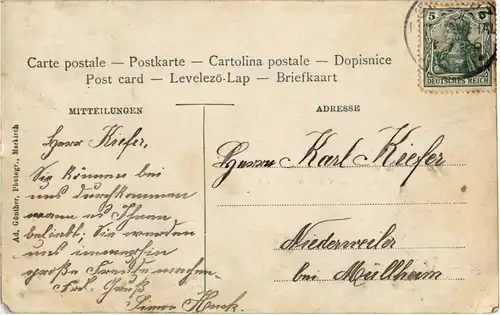 Carte postale — Postkarte — Cartolina postale — Dopisnice
Post card — Levelezö-Lap — Briefkaart
MITTEILUNGEN
ADRESSE
5 5
DEUTSCHES REICH
Ad. Günther, Photogr., Markirch
Herr Kiefer,
Sie können bei
uns durchkommen
wann es Ihnen
beliebt, Sie werden
uns immerhin
große Freude machen
Frdl. Gruß
Simon Huck.
Herrn Karl Kiefer
Niederweiler
bei Müllheim